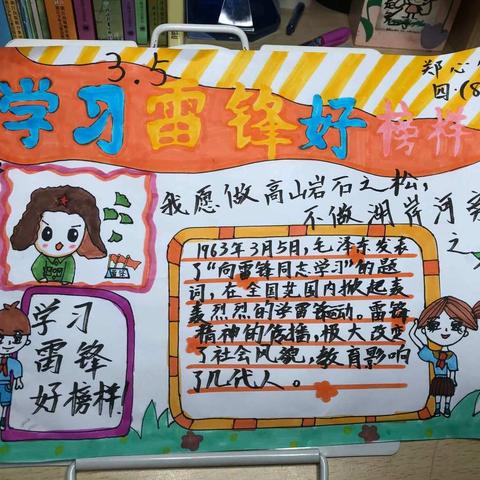 3.5
学习雷锋好榜样
郑心
四·(8
我愿做高山岩石之松,
不做湖岸河旁
之
1963年3月5日,毛泽东发表
了“向雷锋同志学习”的题
词,在全国范围内掀起轰
轰烈烈的学雷锋活动。雷锋
精神的传播,极大改变
了社会风貌,教育影响
了几代人。
学习
雷锋
好榜样!